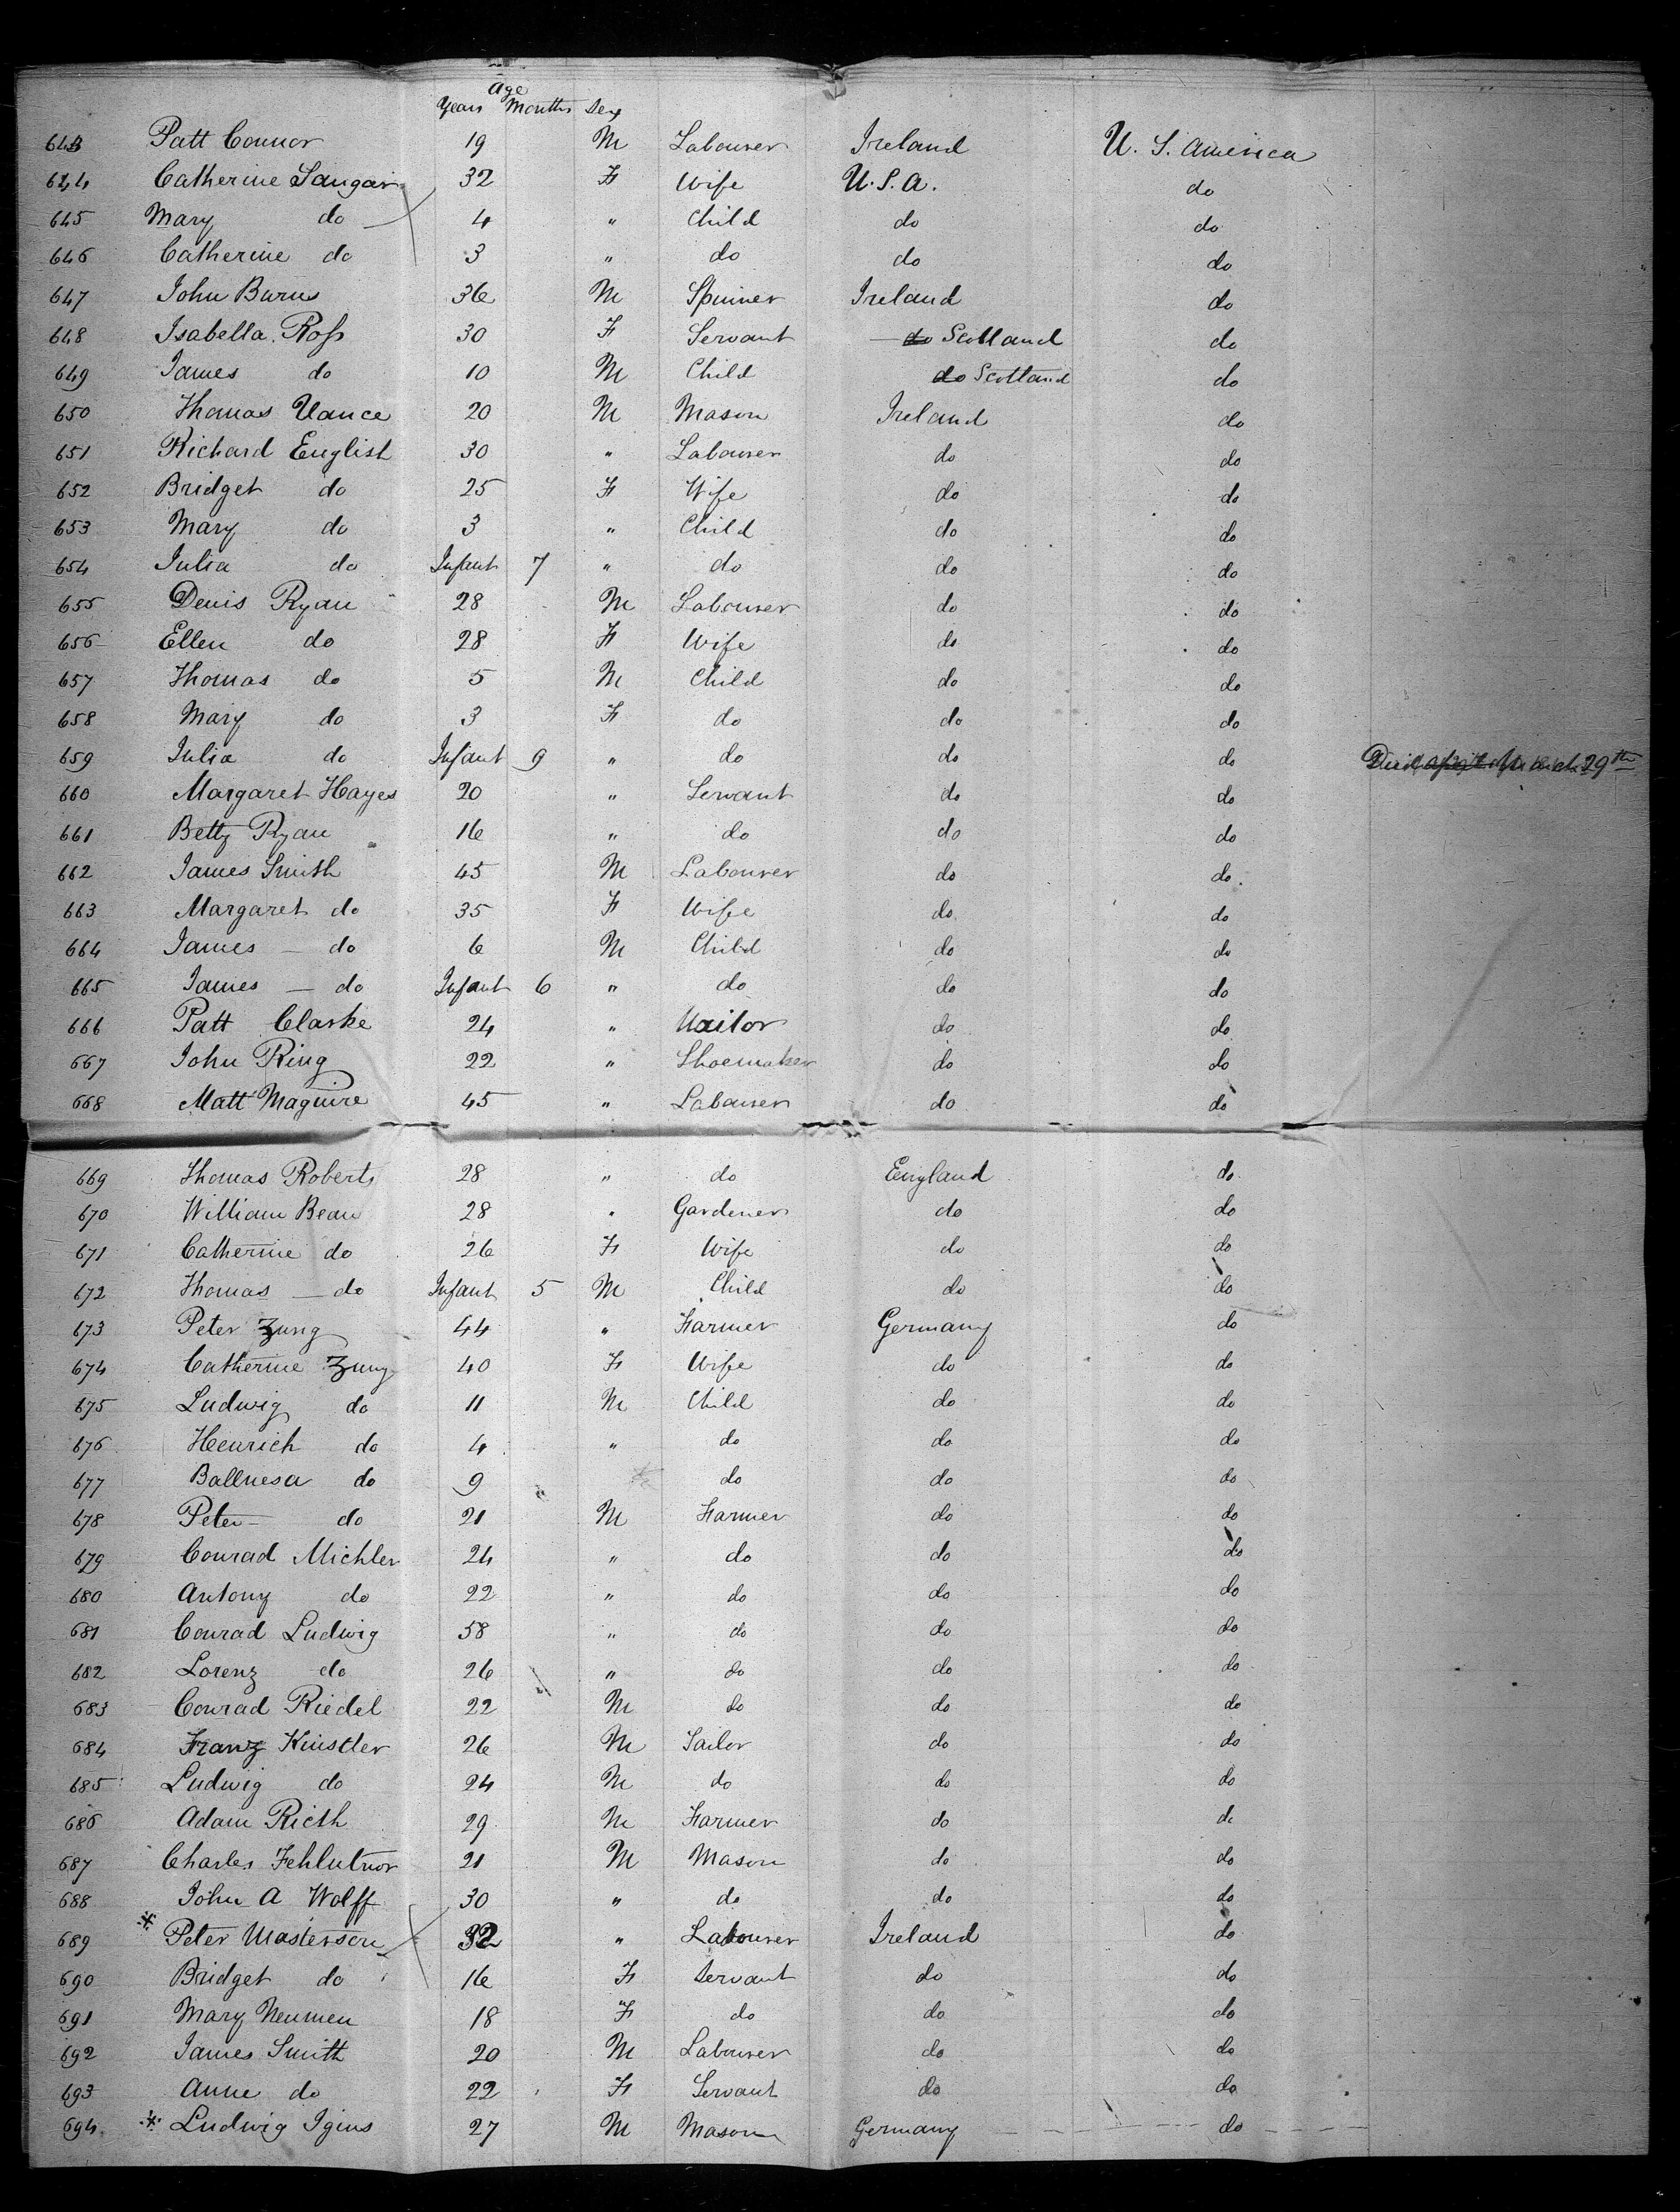 Age
Years Months Sex
643 Patt Connor 19 M Labourer Ireland U. S. America
644 Catherine Sangar 32 F Wife U.S.A. do
645 Mary do 4 " Child do do
646 Catherine do 3 " do do do
647 John Burns 36 M Spinner Ireland do
648 Isabella Ross 30 F Servant do Scotland do
649 James do 10 M Child do Scotland do
650 Thomas Vance 20 M Mason Ireland do
651 Richard English 30 " Labourer do do
652 Bridget do 25 F Wife do do
653 Mary do 3 " Child do do
654 Julia do Infant 7 " do do do
655 Denis Ryan 28 M Labourer do do
656 Ellen do 28 F Wife do do
657 Thomas do 5 M Child do do
658 Mary do 3 F do do do
659 Julia do Infant 9 " do do do Died March 29th
660 Margaret Hayes 20 " Servant do do
661 Betty Ryan 16 " do do do
662 James Smith 45 M Labourer do do
663 Margaret do 35 F Wife do do
664 James - do 6 M Child do do
665 James - do Infant 6 " do do do
666 Patt Clarke 24 " do do
667 John Ring 22 " Shoemaker do do
668 Matt Maguire 45 " Labourer do do
669 Thomas Roberts 28 " do England do
670 William Bean 28 " Gardener do do
671 Catherine do 26 F Wife do do
672 Thomas - do Infant 5 M Child do do
673 Peter Zung 44 " Farmer Germany do
674 Catherine Zung 40 F Wife do do
675 Ludwig do 11 M Child do do
676 Heinrich do 4 " do do do
677 Ballnesa do 9 do do do
678 Peter - do 21 M Farmer do do
679 Conrad Michler 24 " do do do
680 Antony do 22 " do do do
681 Conrad Ludwig 58 " do do do
682 Lorenz do 26 " do do do
683 Conrad Riedel 22 M do do do
684 Franz Kinstler 26 M Tailor do do
685 Ludwig do 24 M do do do
686 Adam Rieth 29 M Farmer do do
687 Charles Fehlutnor 21 M Mason do do
688 John A Wolff 30 " do do do
689 * Peter Masterson 32 " Labourer Ireland do
690 Bridget do 16 F Servant do do
691 Mary Neumen 18 F do do do
692 James Smith 20 M Labourer do do
693 Anne do 22 F Servant do do
694 * Ludwig Igins 27 M Mason Germany do